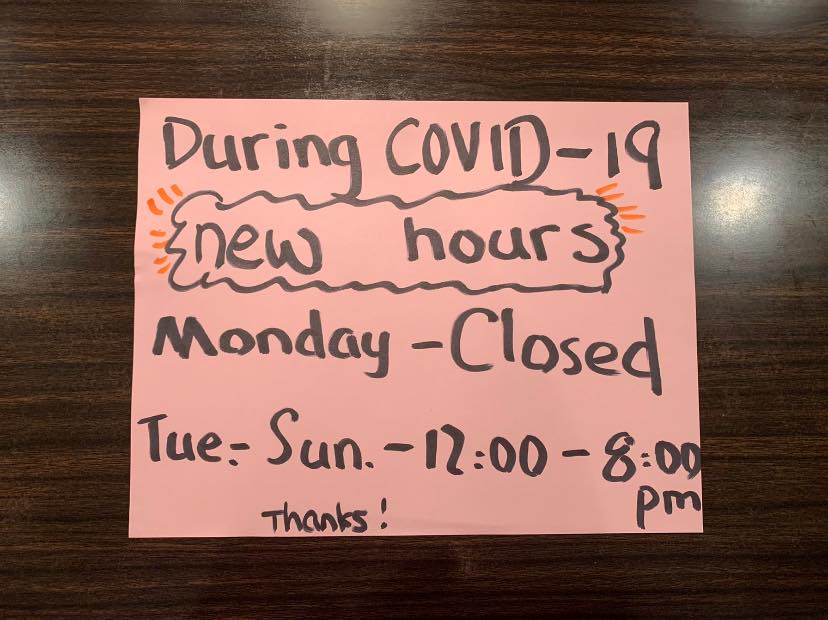 During COVID-19
new hours
Monday - Closed
Tue.- Sun. - 12:00 - 8:00
pm
Thanks!